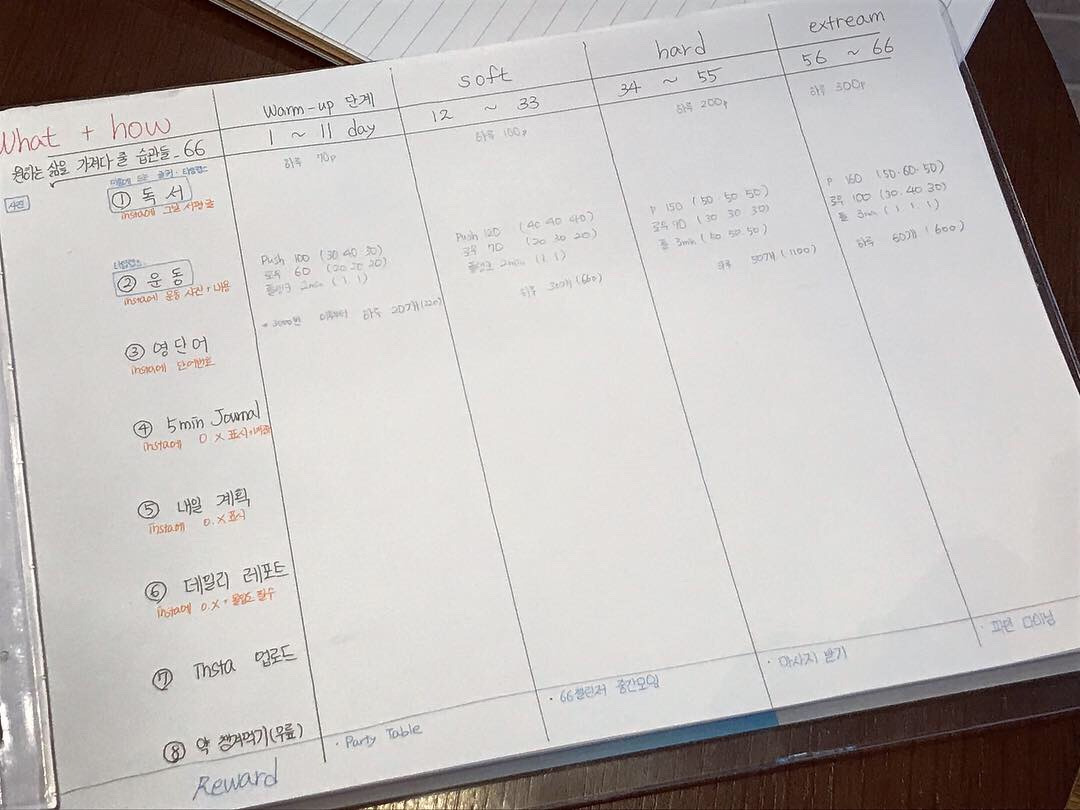 What + how
원하는 삶을 가져다 줄 습관들_66
Warm-up 단계
1 ~ 11 day
soft
12 ~ 33
hard
34 ~ 55
extream
56 ~ 66
하루 70p
하루 100p
하루 200p
하루 300p
사진
① 독서
insta에 그날 서평 글
② 운동
insta에 운동 사진 + 내용
Push 100 (30 40 30)
60 (20 20 20)
플랭크 2min (1 1)
Push 120 (40 40 40)
70 (20 30 20)
플랭크 2min (1 1)
P 150 (50 50 50)
90 (30 30 30)
플 3min
P 160 (50.60.50)
100 (30.40.30)
플 3min (1.1.1)
3000번 하루 20개 (220)
하루 30개 (660)
하루 50개 (1100)
하루 60개 (600)
③ 영단어
insta에 단어번호
④ 5min Journal
insta에 O X 표시
⑤ 내일 계획
insta에 O.X 표시
⑥ 데일리 레포트
insta에 O.X + 필수
⑦ Insta 업로드
⑧ 약 챙겨먹기(무릎)
Reward
· Party Table
· 66챌린저 중간모임
· 마사지 받기
· 파인 다이닝